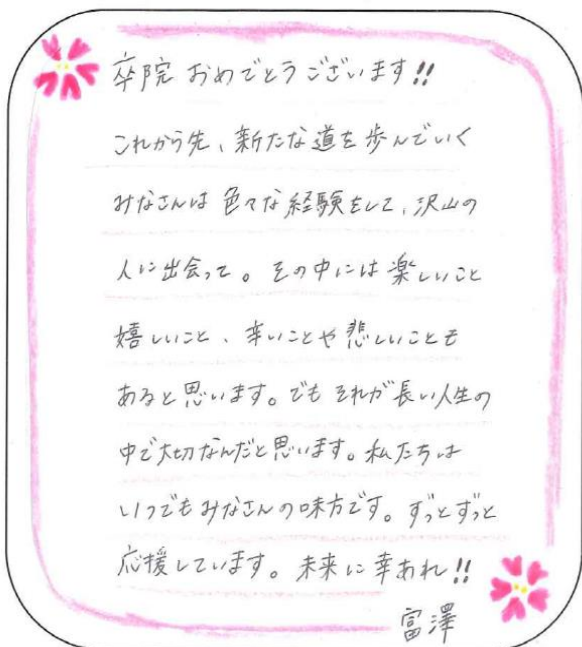 卒院 おめでとうございます!!
これから先、新たな道を歩んでいく
みなさんは 色々な経験をして、沢山の
人に出会って。その中には楽しいこと
嬉しいこと、辛いことや悲しいことも
あると思います。でも それが長い人生の
中で大切なんだと思います。私たちは
いつでもみなさんの味方です。ずっとずっと
応援しています。未来に幸あれ!!
富澤